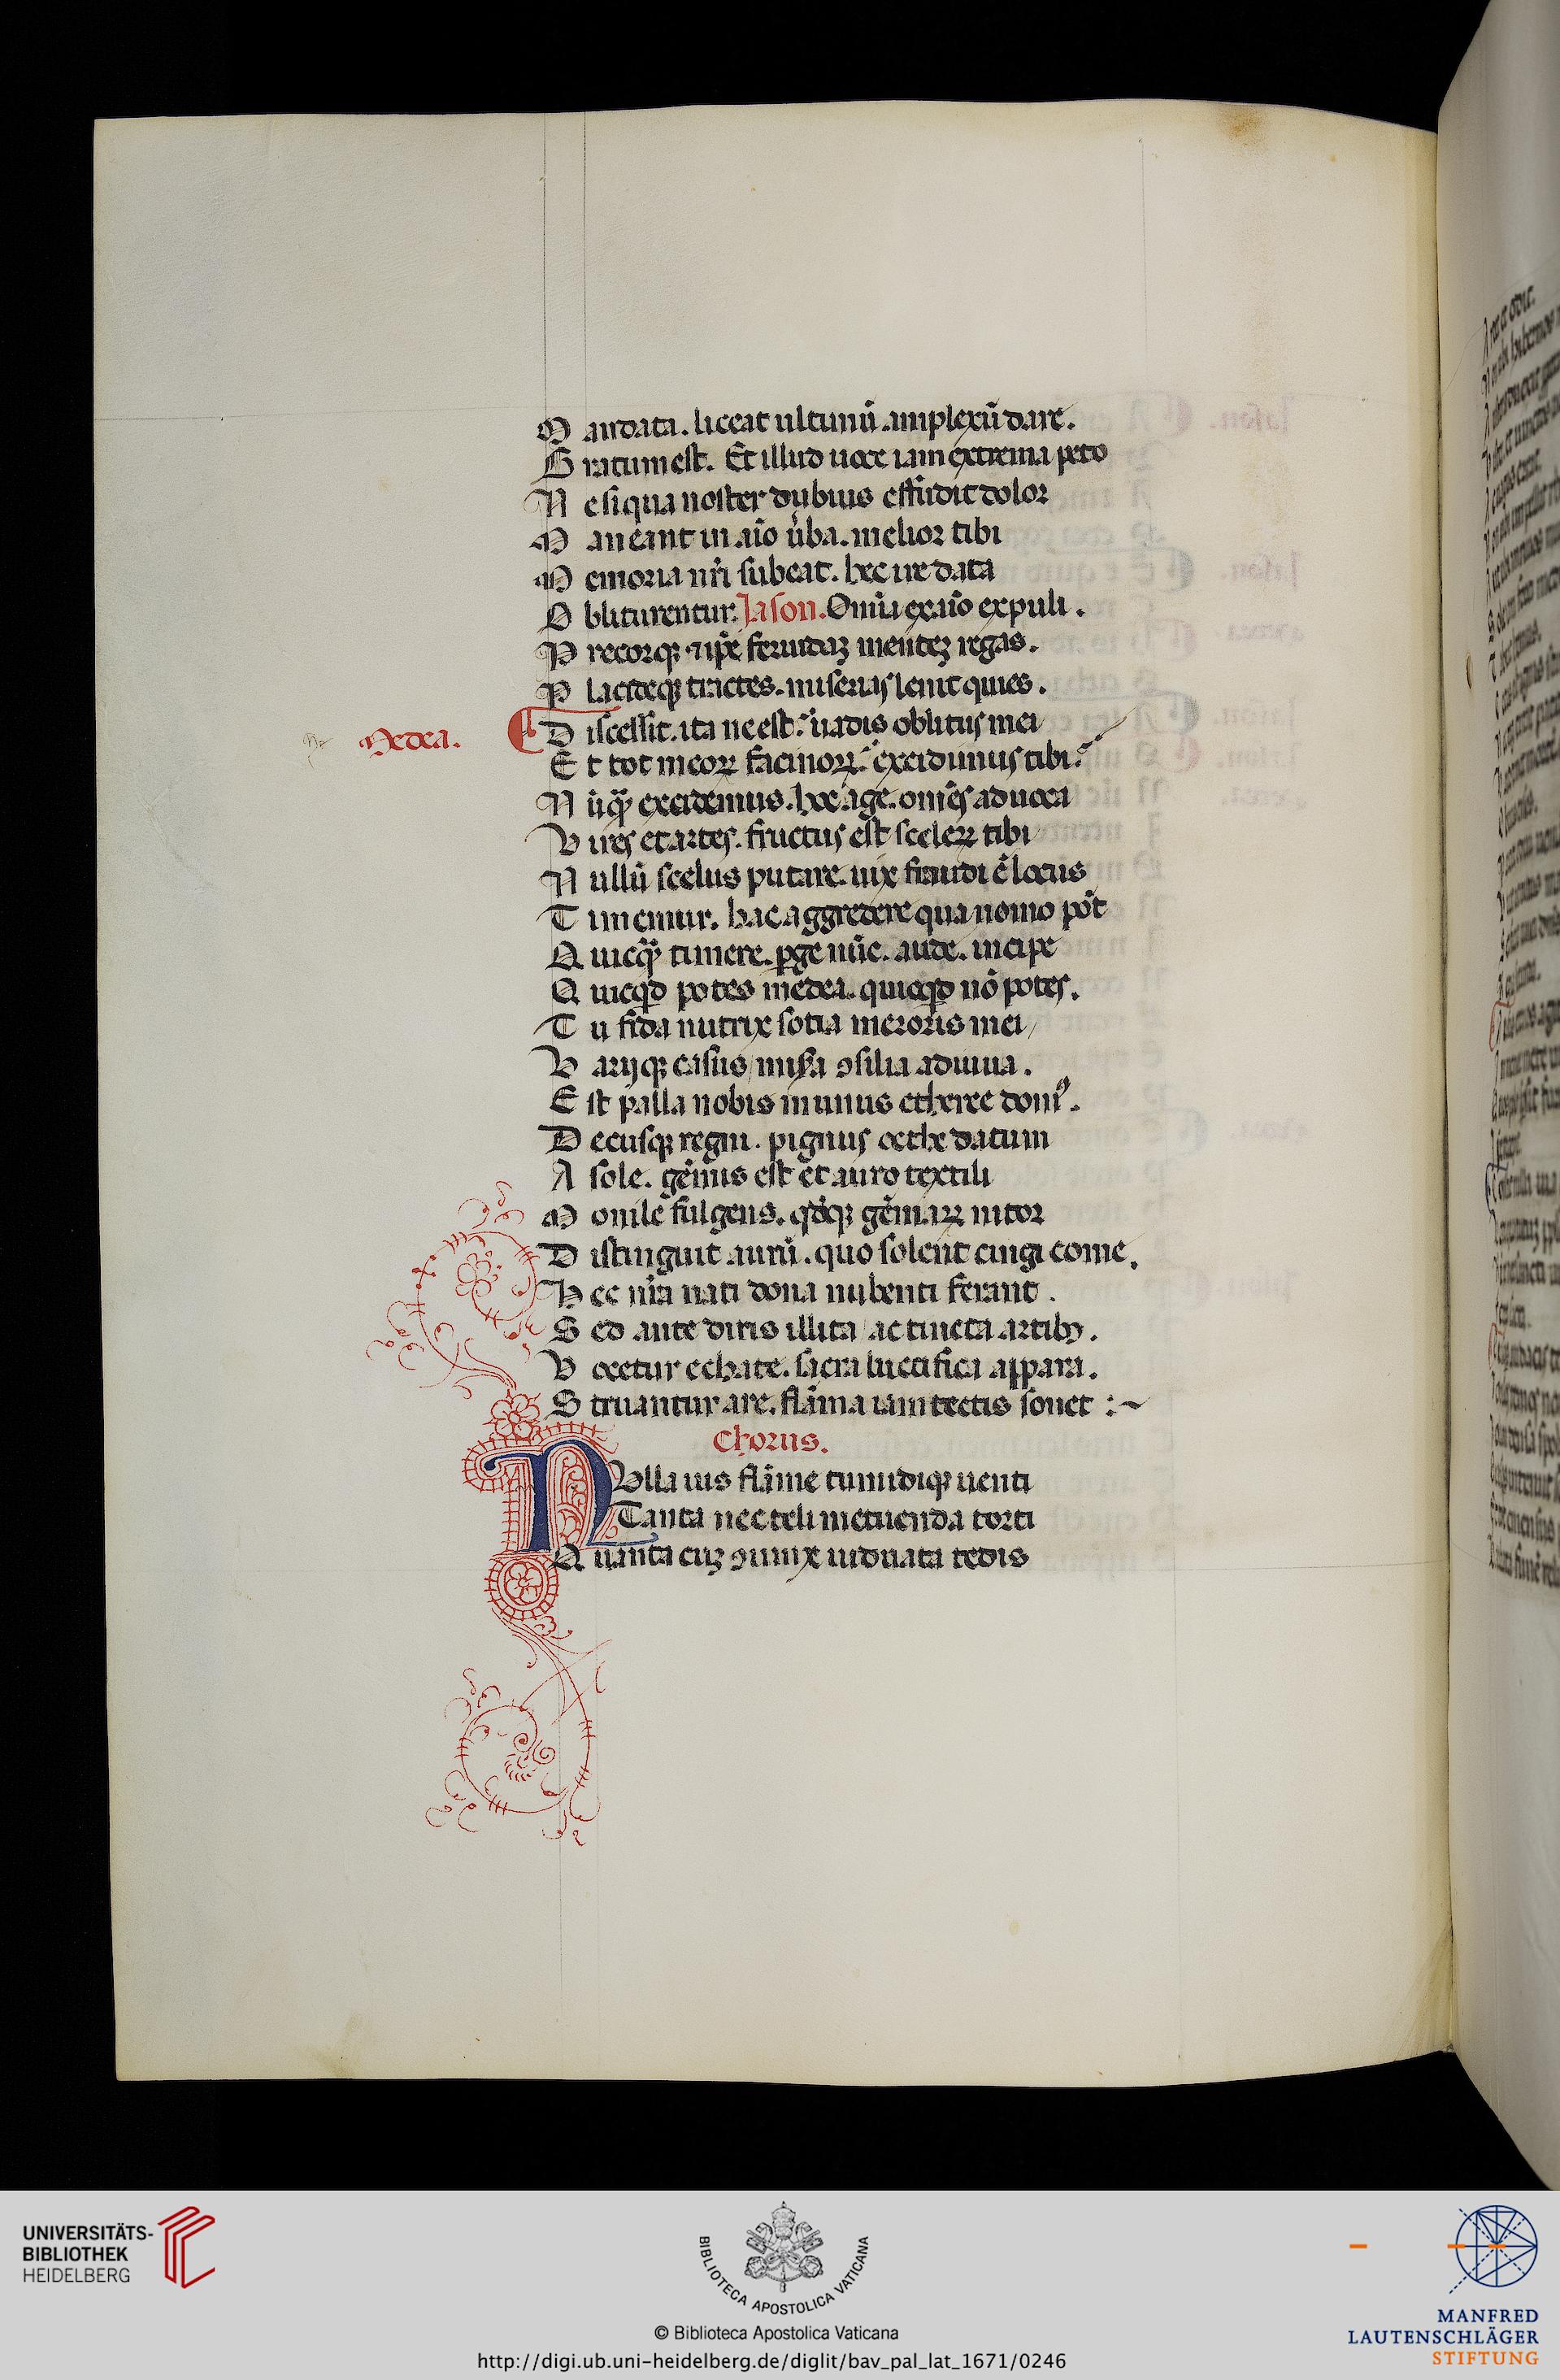 M andata. liceat ultimũ amplexũ dare.
G ratum est. Et illud uoce iam extrema peto
N e siqua noster dubius effudit dolor
M aneant in aĩo ũba. melior tibi
M emoria nr̃i subeat. hec ire data
O bliturentur. Jason. Omĩa ex aĩo expuli.
P recorqꝫ ⁊ ip̃e feruidaꝫ menteꝫ regas.
P laciteqꝫ tractes. miserias lenit quies.
Medea.
D iscessit. ita ne est: uadis oblitus mei
E t tot meoꝝ facinoꝝ: excidimus tibi:
N ũqᷓ excidemus. hoc age. omẽs aduoca
V ires et artes. fructus est sceleꝝ tibi
N ullũ scelus putare. uix fraudi ẽ locus
T imemur. hac aggredere qua nemo põt
Q uicqᷓ timere. ꝑge nũc. aude. incipe
Q uicqͥd potes medea. quicqͥd nõ potes.
T u fida nutrix sotia meroris mei
V arijqꝫ casus mis̃a ꝯsilia adiuua.
E st palla nobis munus etheree domꝰ.
D ecusqꝫ regni. pignus oethe datum
A sole. gẽmis est et auro textili
M onile fulgens. qdqꝫ gẽmaꝝ nitor
D istinguit aurũ. quo solent cingi come.
H ec nr̃a nati dona nubenti ferant.
S ed ante diris illita ac tincta artibꝰ.
V ocetur echate. sacra luctifica appara.
S truantur are. flãma iam tectis sonet :~
Chorus.
NVlla uis flãme tumidiqꝫ uenti
Tanta nec teli metuenda torti
Q uanta cuꝫ ꝯiunx uiduata tedis
UNIVERSITÄTS-
BIBLIOTHEK
HEIDELBERG
BIBLIOTECA APOSTOLICA VATICANA
© Biblioteca Apostolica Vaticana
http://digi.ub.uni-heidelberg.de/diglit/bav_pal_lat_1671/0246
MANFRED
LAUTENSCHLÄGER
STIFTUNG